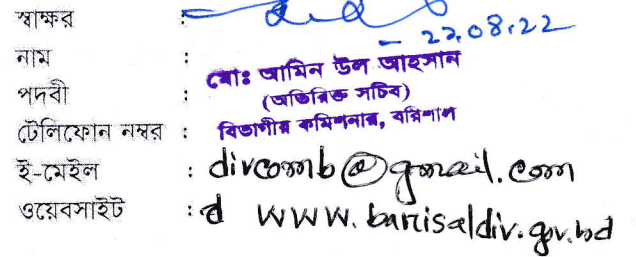 স্বাক্ষর :
22.08.22
নাম :
মোঃ আমিন উল আহসান
পদবী :
(অতিরিক্ত সচিব)
টেলিফোন নম্বর :
বিভাগীয় কমিশনার, বরিশাল
ই-মেইল : divcomb@gmail.com
ওয়েবসাইট : d www.barisaldiv.gov.bd